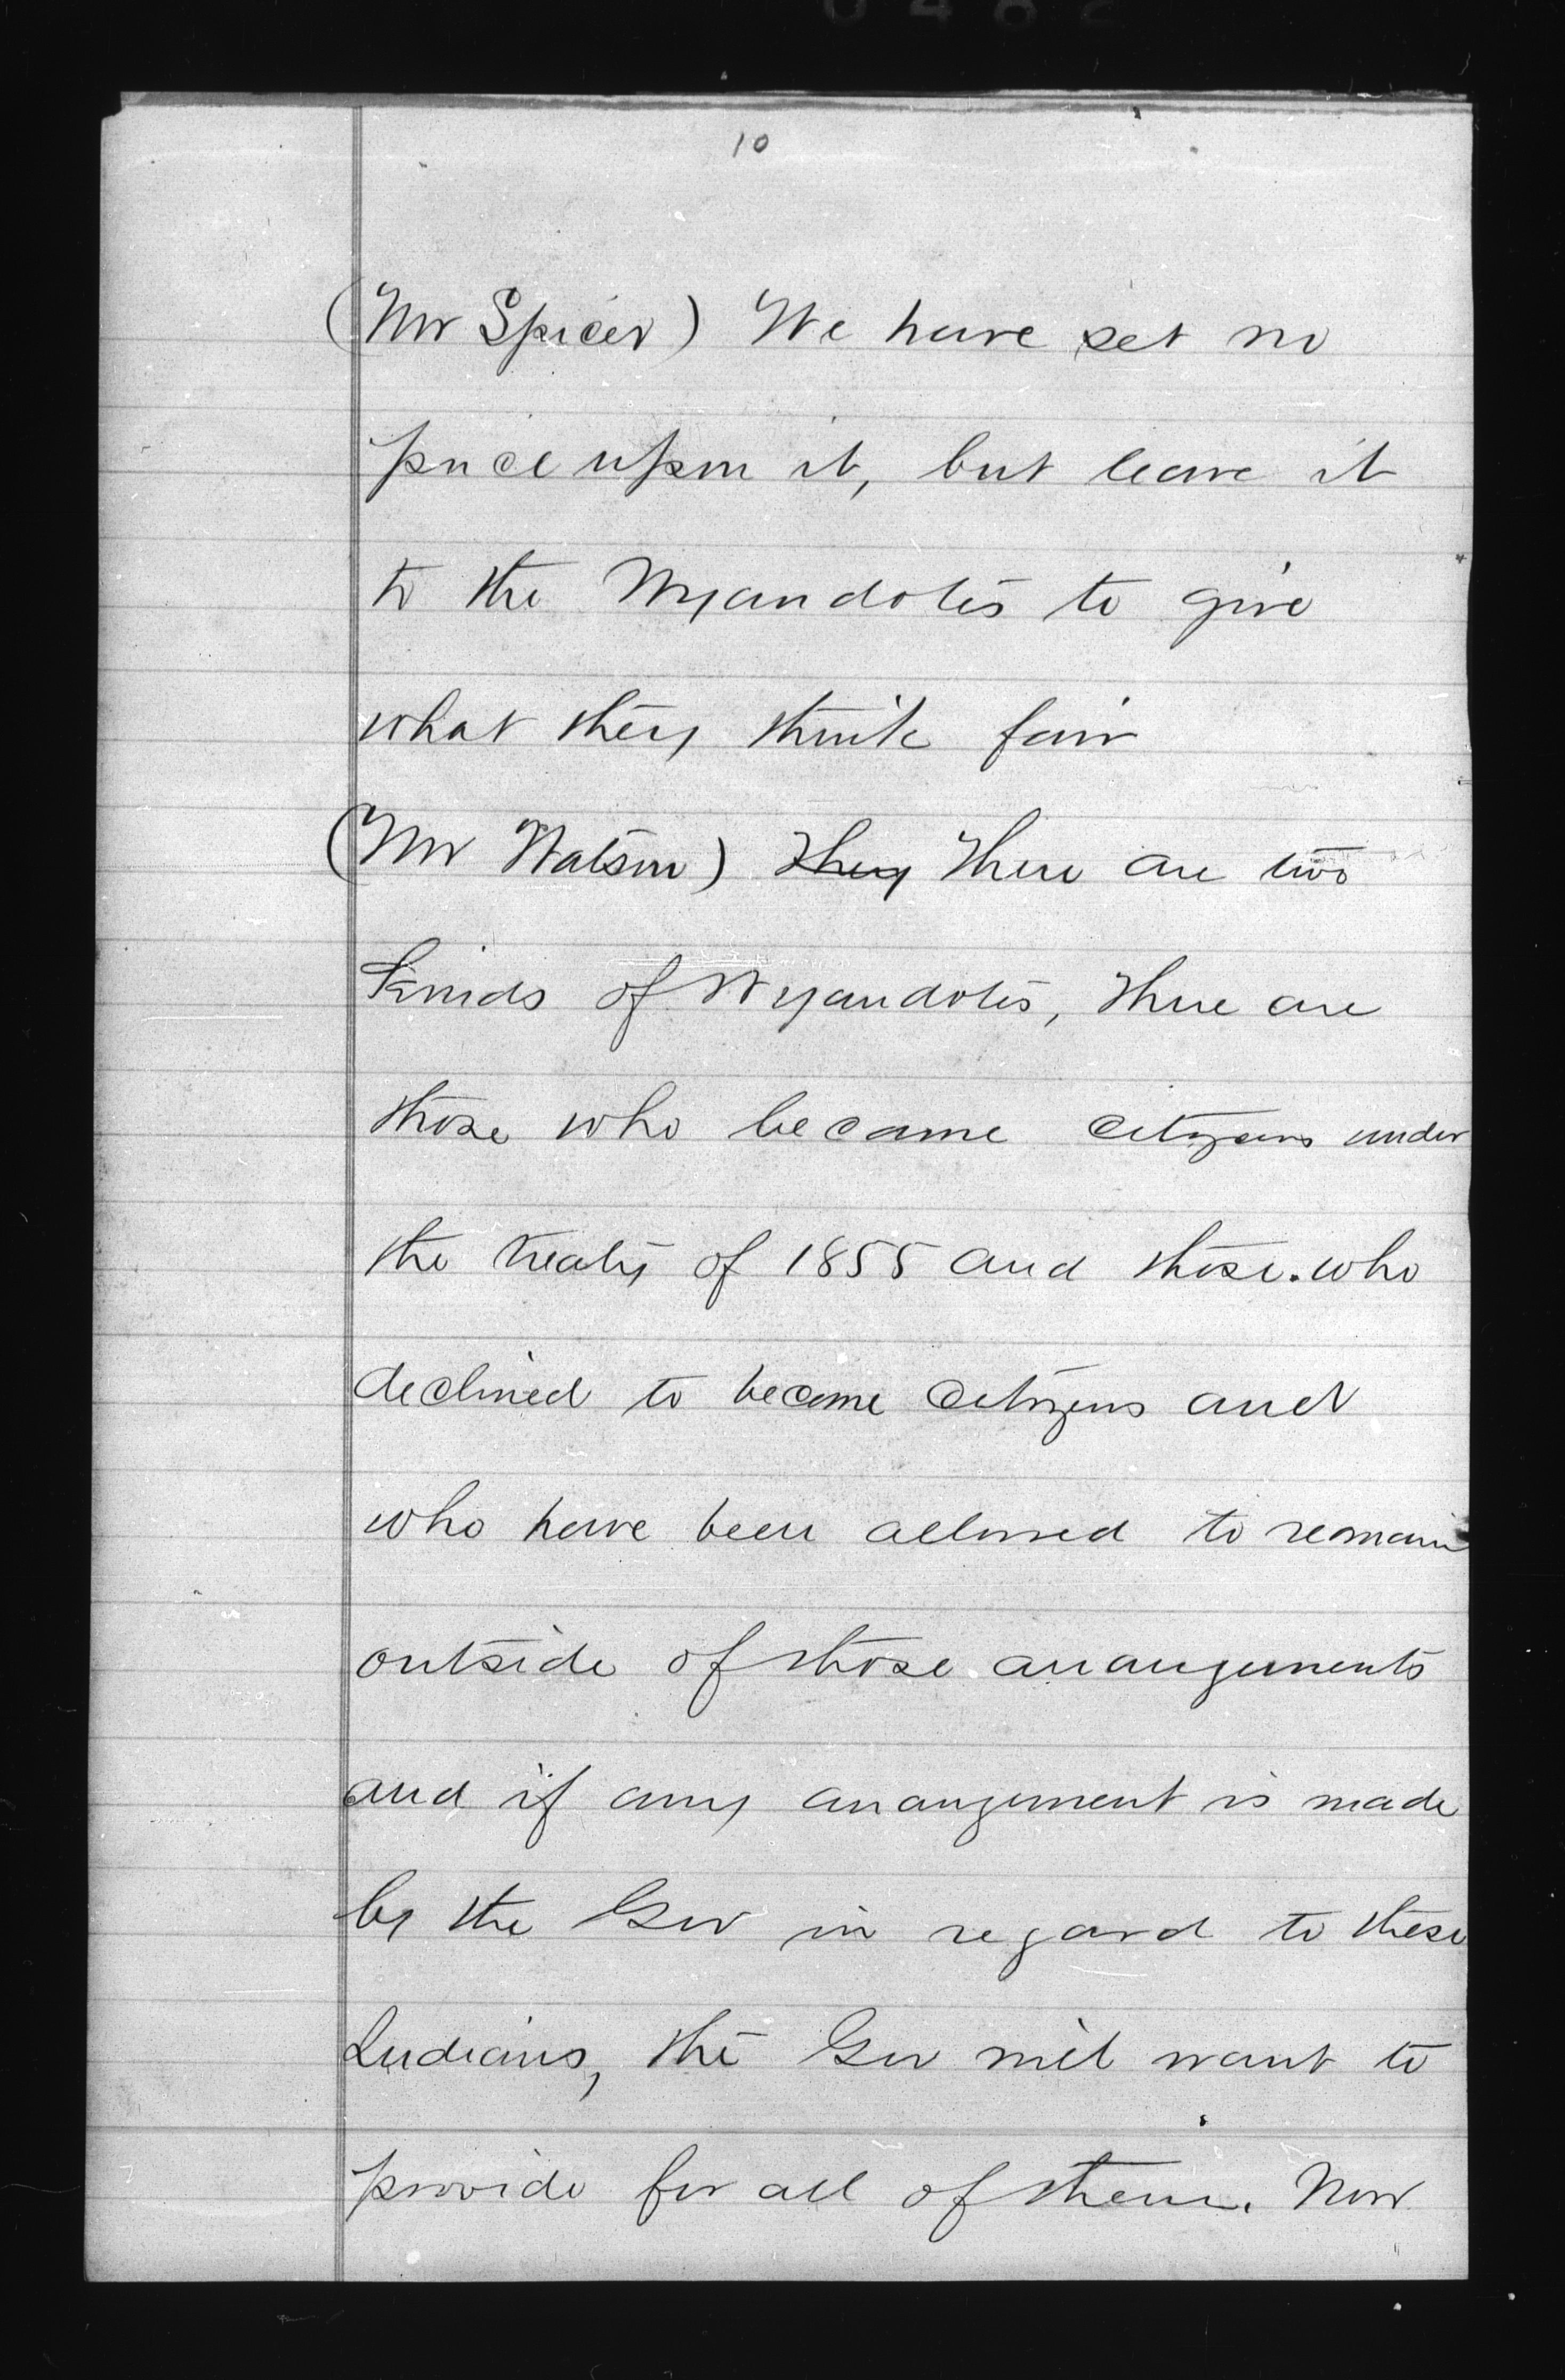 10
(Mr Spicer) We have set no
price upon it, but leave it
to the Wyandotes to give
what they think fair
(Mr Watson) They There are two
kinds of Wyandotes, There are
those who became citizens under
the treaty of 1855 and those who
declined to become citizens and
who have been allowed to remain
outside of those arrangements
and if any arrangement is made
by the Gov in regard to these
Indians, the Gov will want to
provide for all of them. Now